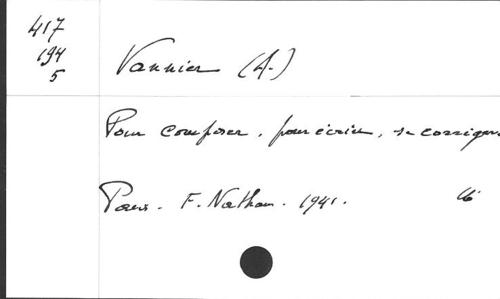 417
194
5
Vannier (A.)
Pour composer, pour écrire, se corriger
Paris. F. Nathan. 1941.